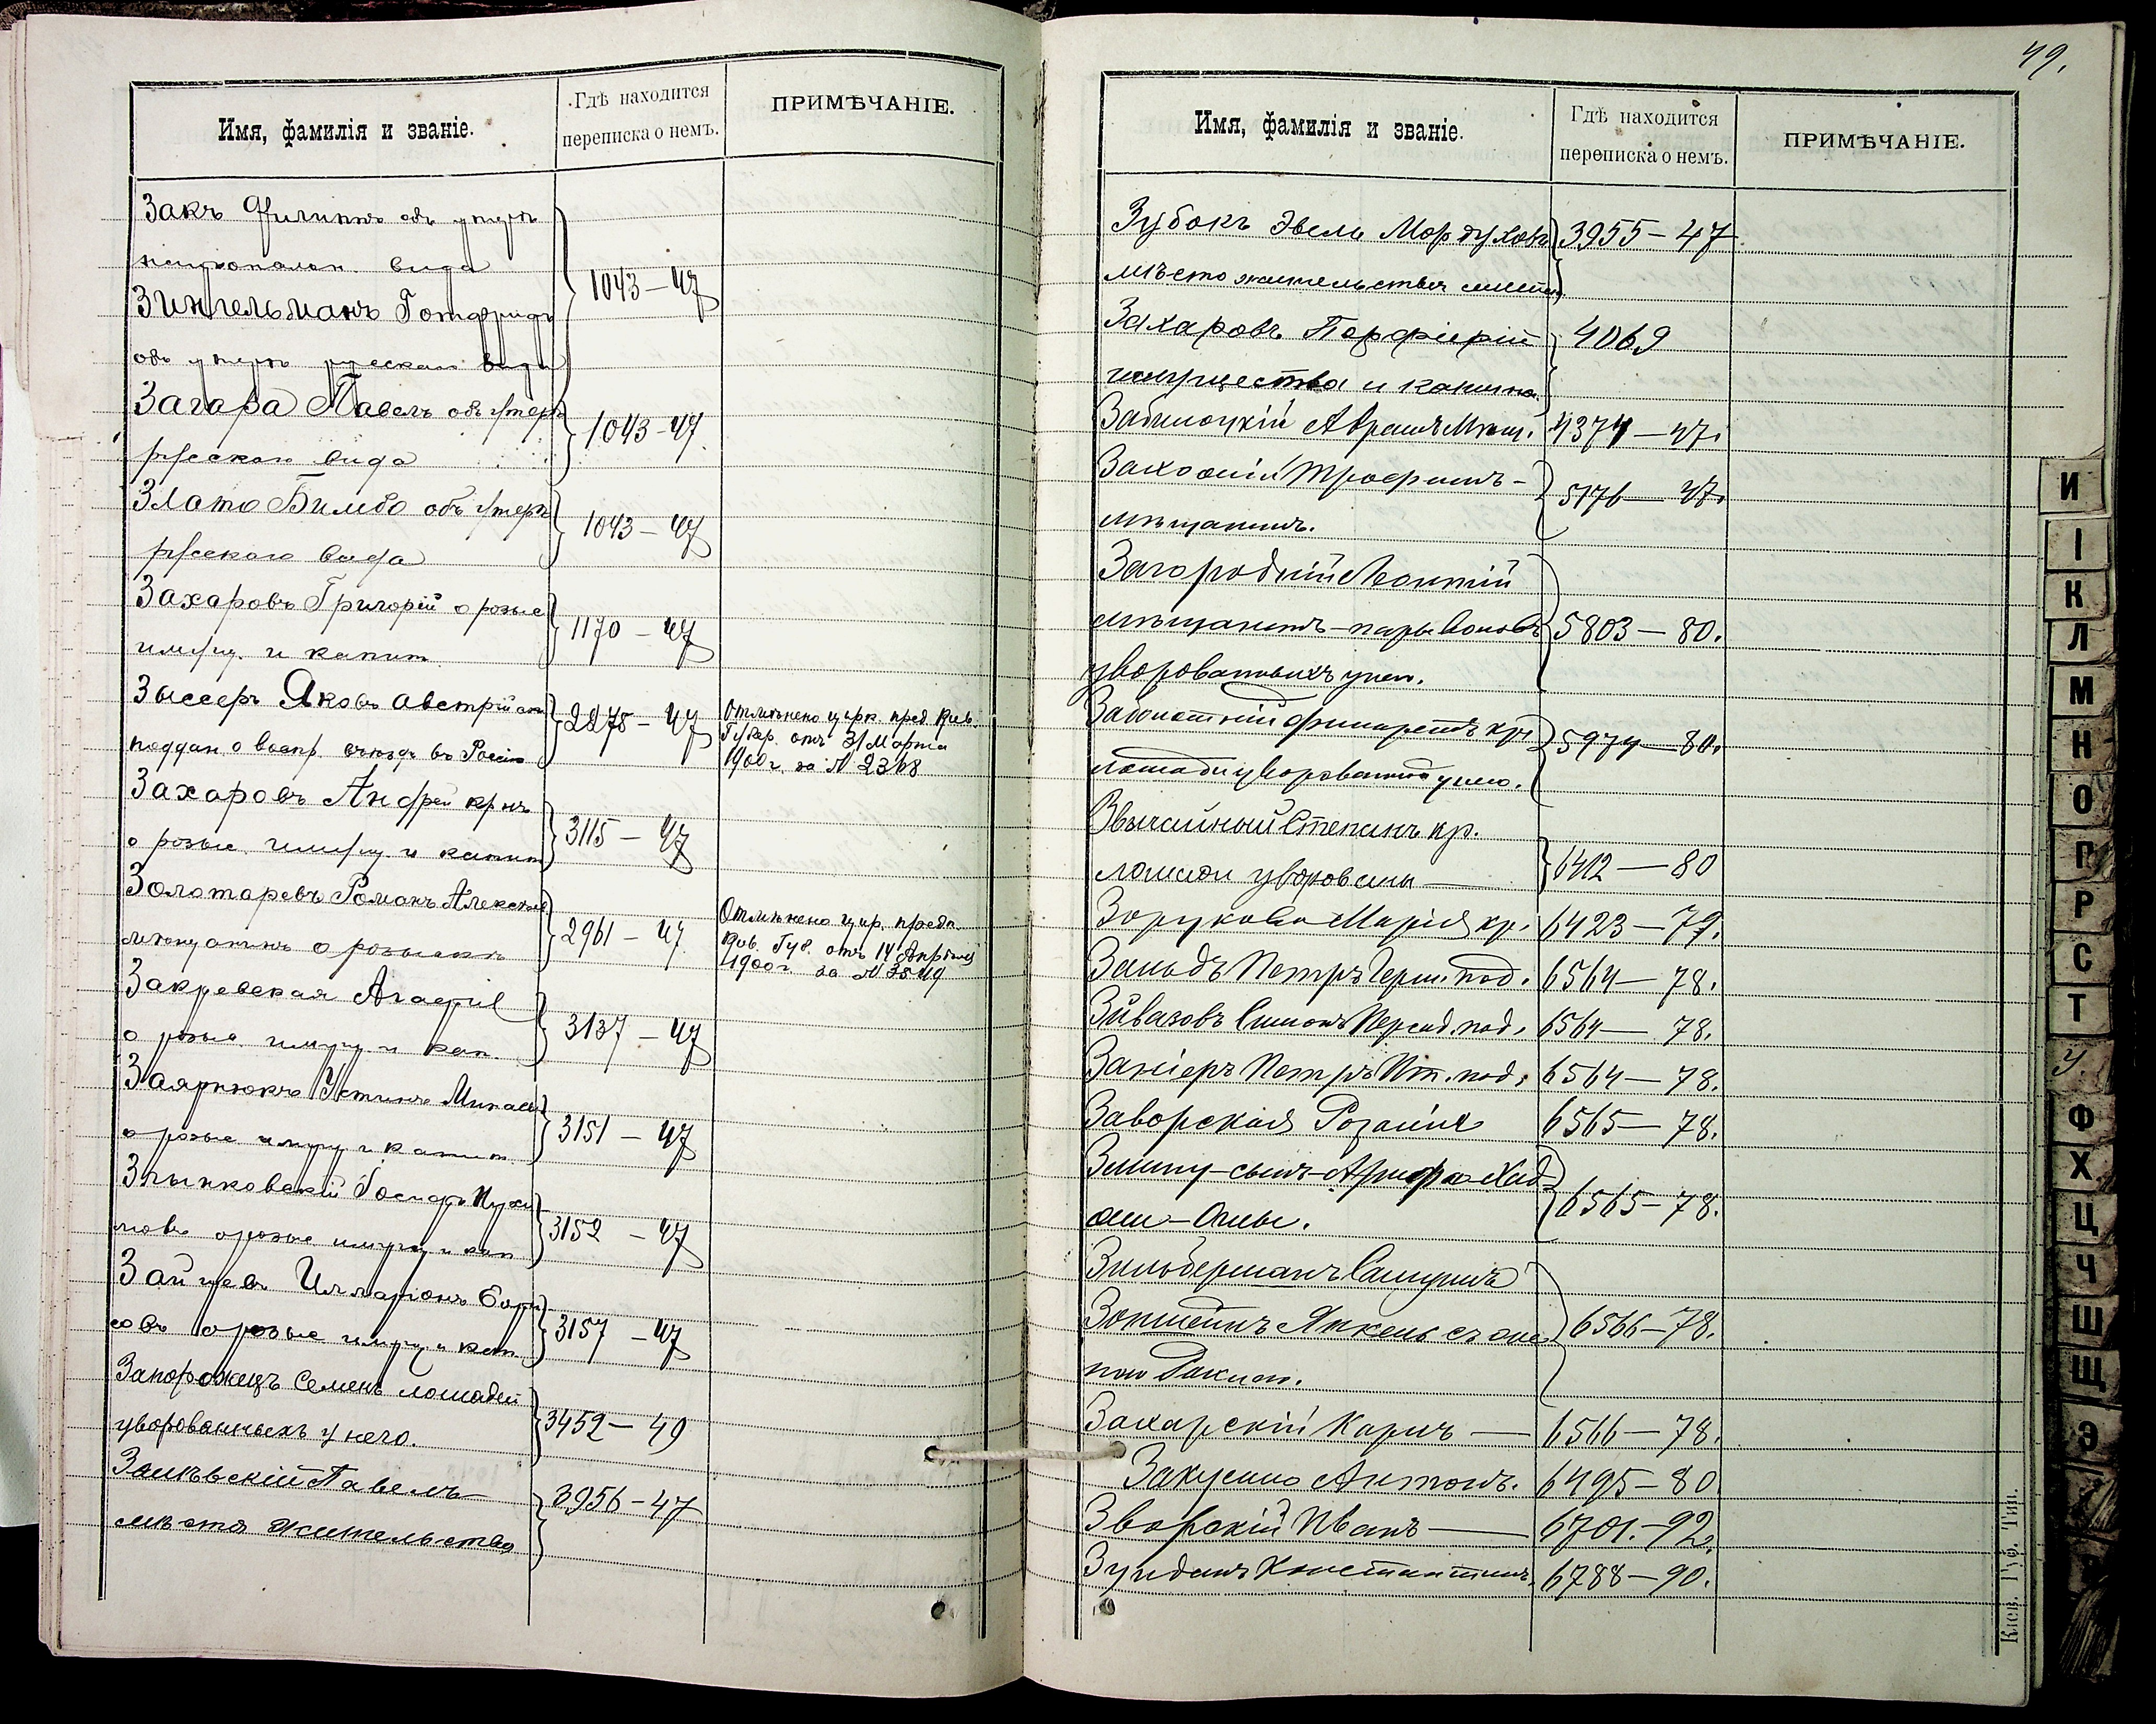 Имя, фамилія и званіе.
Гдѣ находится
переписка о немъ.
ПРИМѢЧАНІЕ.
Закъ Филиппъ объ утерѣ
вида
1043 – 47
Зингельманъ Готфридъ
объ утерѣ русскаго вида
Загара Павелъ объ утерѣ
русскаго вида
1043 – 47
Злато Бимбо объ утерѣ
русскаго вида
1043 – 47
Захаровъ Григорій о розыс
имущ. и капит.
1170 – 47
Зыссеръ Яковъ австрійск
поддан. о воспр. въѣзда въ Россію
2275 – 47
Отмѣнено цирк. пред. Кіев.
Губер. отъ 31 Марта
1900 г. за №
Захаровъ Андрей кр-нъ
о розыс. имущ. и капит
3115 – 47
Золотаревъ Романъ Алексѣев
мѣщанинъ о розыскѣ
2961 – 47
Отмѣнено цир. предп.
Кіев. Губ. отъ 14 Апрѣля
1900 г. за №
Закревская Агафія
о розыс. имущ. и кап.
3137 – 47
Заярнюкъ Устинъ
о розыс. имущ. и капит.
3151 – 47
о розыс. имущ. и кап
3152 – 47
Зайцевъ Илларіонъ Бори
совъ о розыс имущ. и кап.
3157 – 47
Запорожецъ Семенъ лошадей
уворованныхъ у него.
3452 – 49
Павелъ
мѣста жительства
3956 – 47
49.
Имя, фамилія и званіе.
Гдѣ находится
переписка о немъ.
ПРИМѢЧАНІЕ.
Зубокъ Эвель Мордуховъ
мѣсто жительства
3955 – 47
Захаровъ Порфирій
имущества и капитала
4069
Заблоцкій Авраамъ мѣщ.
4374 – 47.
Трофимъ –
мѣщанинъ.
5176 – 47.
Загородній Леонтій
мѣщанинъ – пары воловъ
уворованныхъ у него.
5803 – 80.
Заболотній Филаретъ кр.
лошади уворованной у него.
5974 – 80.
Звычайный Степанъ кр.
лошади уворованы —
6412 – 80
Марія кр.
6423 – 79.
Петръ Герм. под.
6564 – 78.
Эйвазовъ Симонъ Персид. под.
6564 – 78.
Заніеръ Петръ Ит. под.
6564 – 78.
Заворская Розалія
6565 – 78.
6565 – 78.
Зильберманъ Самуилъ
Янкель съ
6566 – 78.
Захарскій Карлъ —
6566 – 78.
Антонъ.
6495 – 80
Зворскій Иванъ —
6701. – 92.
Константинъ.
6788 – 90.
Кіев. Губ. Тип.
И
І
К
Л
М
Н
О
П
Р
С
Т
У.
Ф
Х
Ц
Ч
Ш
Щ
Э